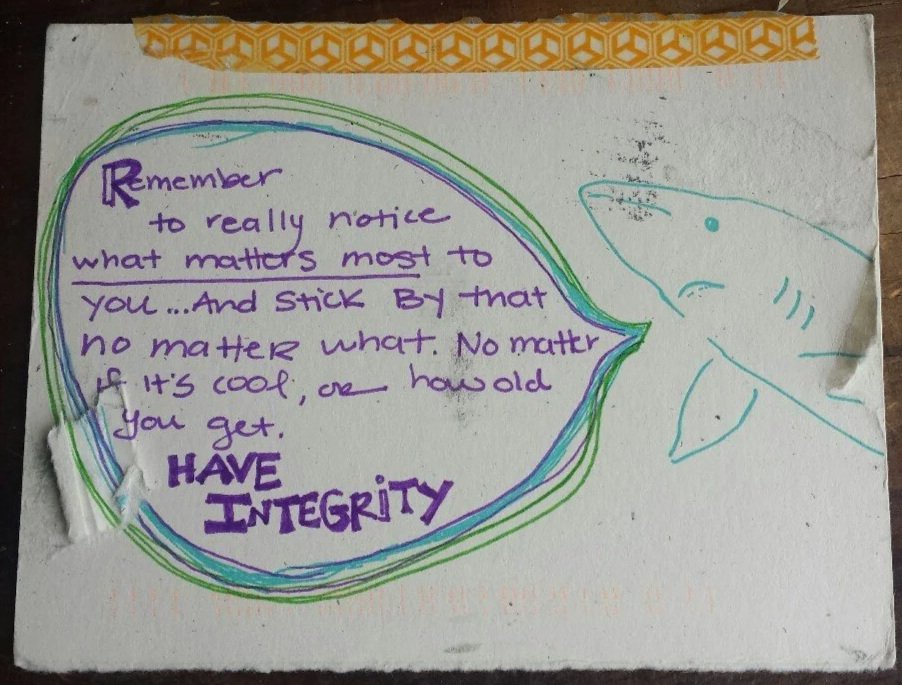 Remember
to really notice
what matters most to
you...And stick By that
no matter what. No matter
if it's cool, or how old
you get.
HAVE
INTEGRITY